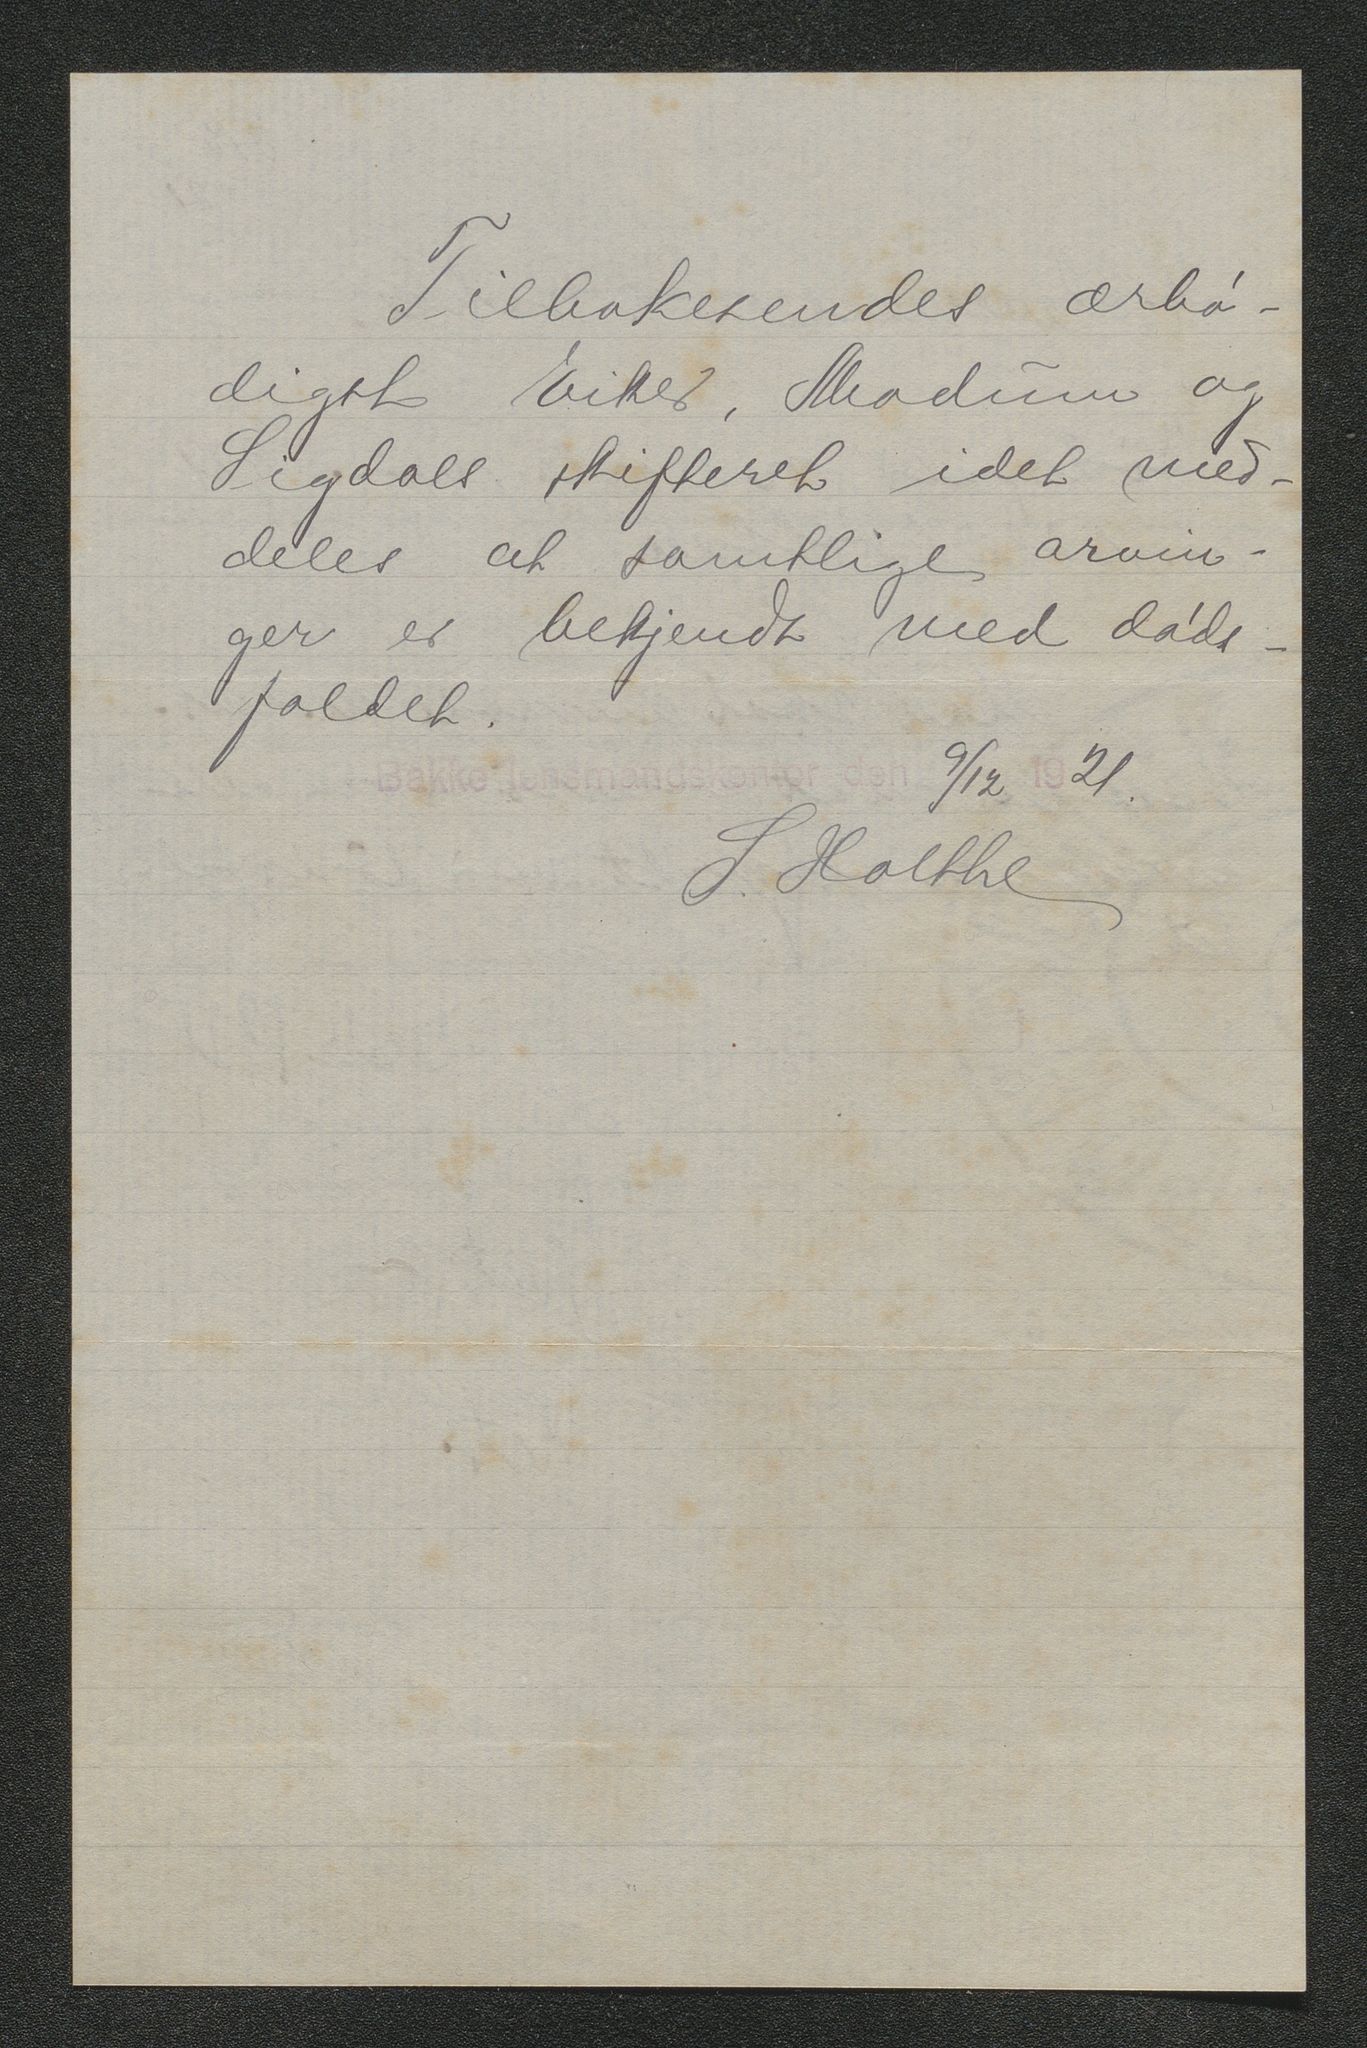 Tilbakesendes ærbø-
digst Eiker, Modum og
Sigdals skifteret idet med-
deles at samtlige arvin-
ger er bekjendt med døds-
faldet.
Bakke lensmandskontor den 9/12 1921.
S. Holthe